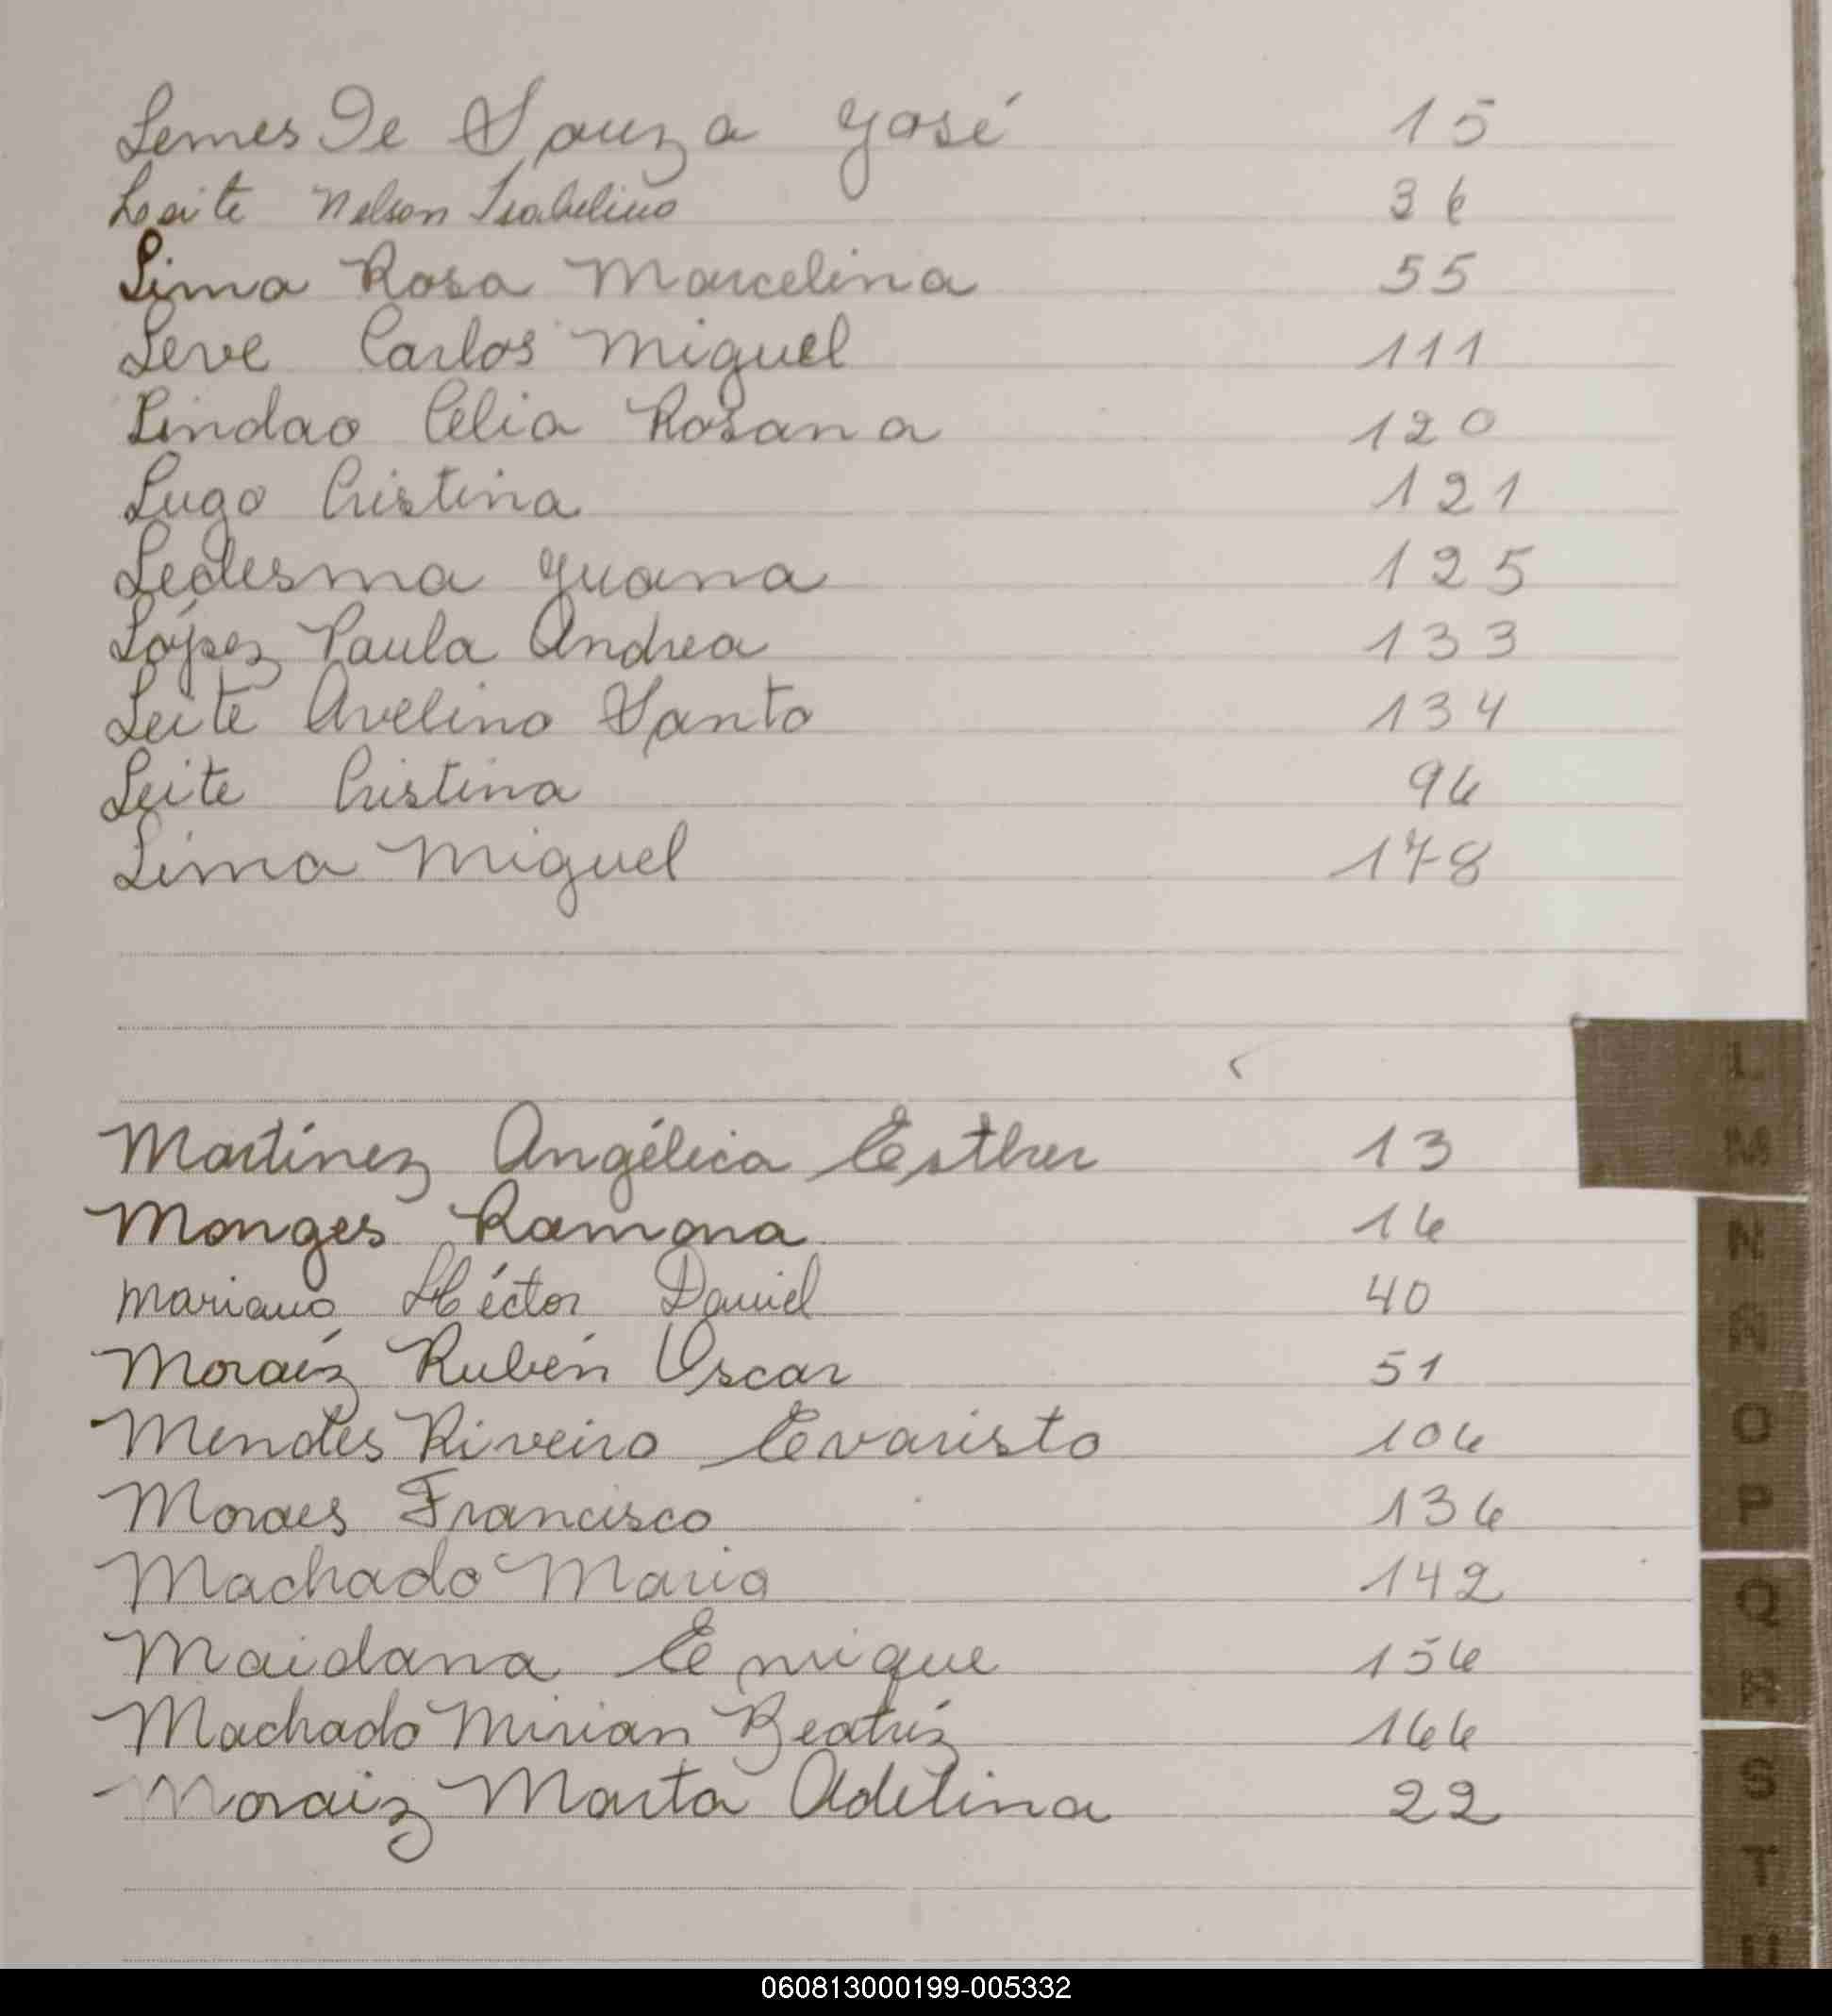 Lemes De Souza José 15
Leite Nelson Isabelino 36
Lima Rosa Marcelina 55
Leve Carlos Miguel 111
Lindao Celia Rosana 120
Lugo Cristina 121
Ledesma Juana 125
López Paula Andrea 133
Leite Avelino Santo 134
Leite Cristina 96
Lima Miguel 178
L
M
Martínez Angélica Esther 13
Monges Ramona 16
N
Mariano Héctor Daniel 40
Ñ
Moraíz Rubén Oscar 51
O
Mendes Riveiro Evaristo 106
P
Moraes Francisco 136
Machado Maria 142
Q
Maidana Enrique 156
R
Machado Mirian Beatríz 166
S
Moraiz Marta Adelina 22
T
U
060813000199-005332